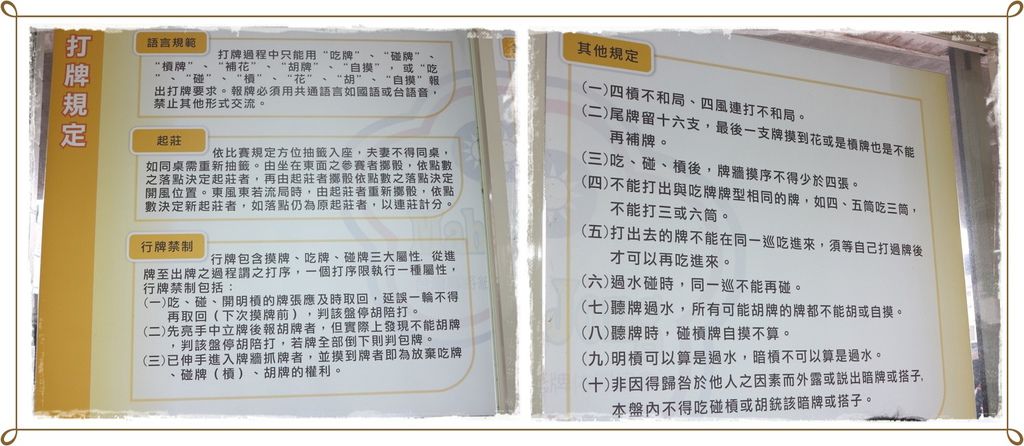 打牌規定
語言規範
打牌過程中只能用“吃牌”、“碰牌”、
“槓牌”、“補花”、“胡牌”、“自摸”，或“吃
”、“碰”、“槓”、“花”、“胡”、“自摸”報
出打牌要求。報牌必須用共通語言如國語或台語音，
禁止其他形式交流。
起莊
依比賽規定方位抽籤入座，夫妻不得同桌，
如同桌需重新抽籤。由坐在東面之參賽者擲骰，依點數
之落點決定起莊者，再由起莊者擲骰依點數之落點決定
開風位置。東風東若流局時，由起莊者重新擲骰，依點
數決定新起莊者，如落點仍為原起莊者，以連莊計分。
行牌禁制
行牌包含摸牌、吃牌、碰牌三大屬性. 從進
牌至出牌之過程謂之打序，一個打序限執行一種屬性，
行牌禁制包括：
(一)吃、碰、開明槓的牌張應及時取回，延誤一輪不得
再取回（下次摸牌前），判該盤停胡陪打。
(二)先亮手中立牌後報胡牌者，但實際上發現不能胡牌
，判該盤停胡陪打，若牌全部倒下則判包牌。
(三)已伸手進入牌牆抓牌者，並摸到牌者即為放棄吃牌
、碰牌（槓）、胡牌的權利。
其他規定
(一)四槓不和局、四風連打不和局。
(二)尾牌留十六支，最後一支牌摸到花或是槓牌也是不能
再補牌。
(三)吃、碰、槓後，牌牆摸序不得少於四張。
(四)不能打出與吃牌牌型相同的牌，如四、五筒吃三筒，
不能打三或六筒。
(五)打出去的牌不能在同一巡吃進來，須等自己打過牌後
才可以再吃進來。
(六)過水碰時，同一巡不能再碰。
(七)聽牌過水，所有可能胡牌的牌都不能胡或自摸。
(八)聽牌時，碰槓牌自摸不算。
(九)明槓可以算是過水，暗槓不可以算是過水。
(十)非因得歸咎於他人之因素而外露或說出暗牌或搭子,
本盤內不得吃碰槓或胡銃該暗牌或搭子。